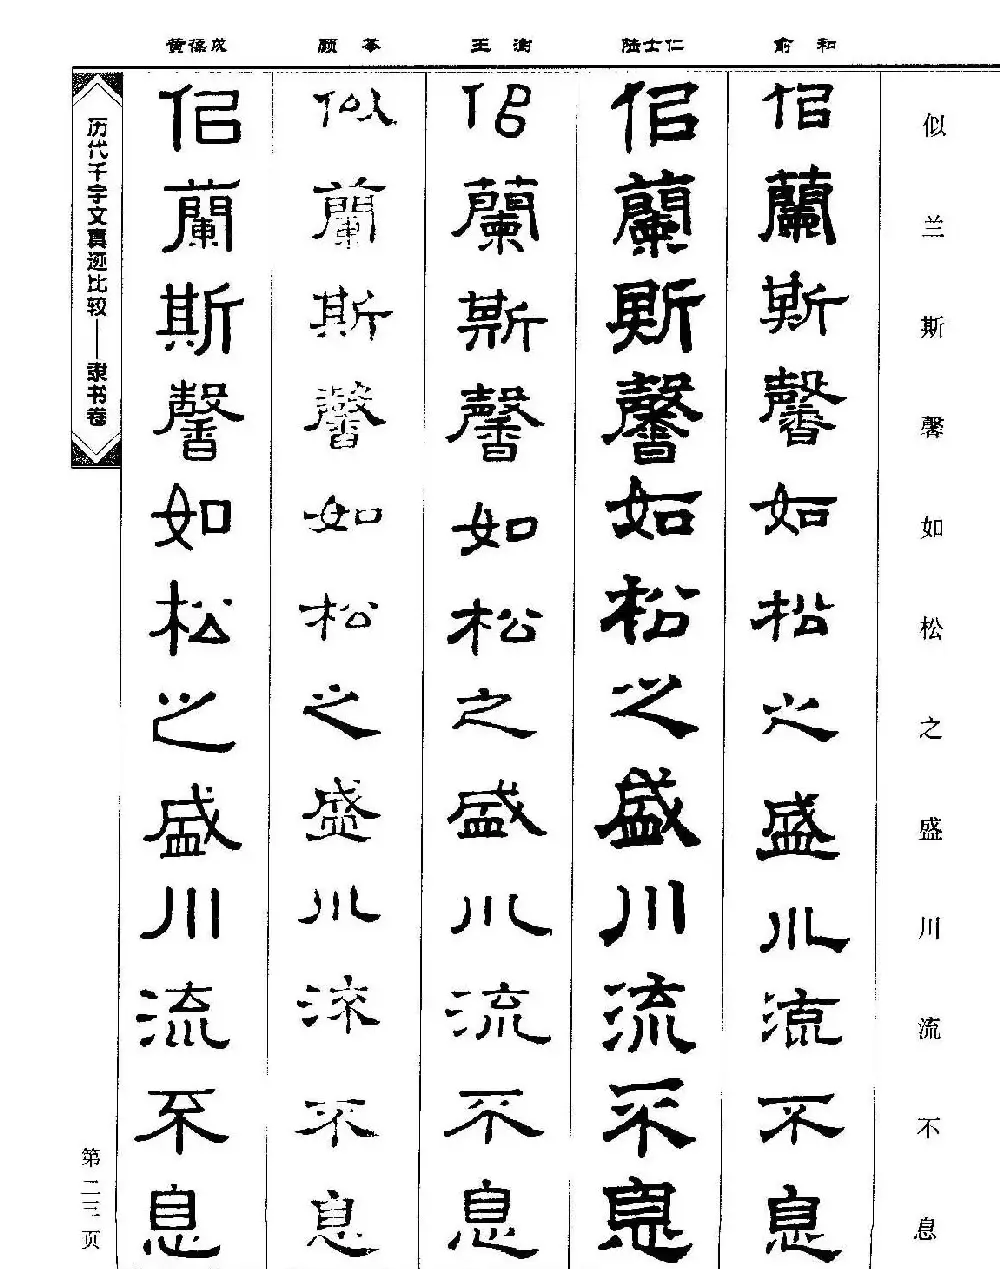 俞和
陆士仁
王澍
顾苓
黄葆戉
似兰斯馨如松之盛川流不息
佀蘭斯馨如松之盛川流不息
佀蘭斯馨如松之盛川流不息
佀蘭斯馨如松之盛川流不息
似蘭斯馨如松之盛川流不息
佀蘭斯馨如松之盛川流不息
历代千字文真迹比较——隶书卷
第二三页